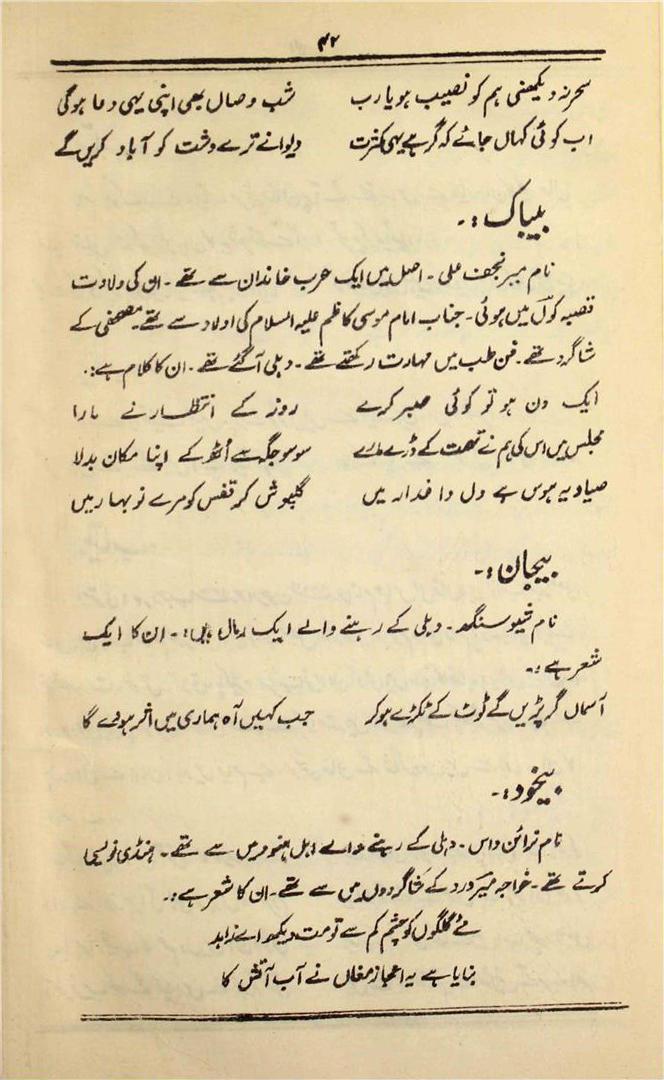 ۴۲
سحر نہ دیکھنی ہم کو نصیب ہو یا رب شب وصال بھی اپنی یہی دعا ہوگی
اب کوئی کہاں جائے کہ گر ہے یہی کثرت دیوانے ترے دشت کو آباد کریں گے
بیباک :۔
نام میر نجف علی ۔ اصل میں ایک عرب خاندان سے تھے ۔ ان کی ولادت
قصبہ کول میں ہوئی ۔ جناب امام موسی کاظم علیہ السلام کی اولاد سے تھے ۔ مصحفی کے
شاگرد تھے ۔ فن طب میں مہارت رکھتے تھے ۔ دہلی آگئے تھے ۔ ان کا کلام ہے :۔
ایک دن ہو تو کوئی صبر کرے روز کے انتظار نے مارا
مجلس میں اس کی ہم نے تہمت کے ڈرے مارے سو سو جگہ سے اُٹھ کے اپنا مکان بدلا
صیاد یہ ہوس ہے دل داغدار میں گلپوش کر قفس کو مرے نو بہار میں
بیجان :۔
نام شیو سنگھ ۔ دہلی کے رہنے والے ایک رمال ہیں :۔ ان کا ایک
شعر ہے :۔
آسماں گر پڑیں گے ٹوٹ کے ٹکڑے ہو کر جب کہیں آہ ہماری میں اثر ہووے گا
بیخود :۔
نام نرائن داس ۔ دہلی کے رہنے والے اہل ہنود میں سے تھے ۔ ہنڈی نویسی
کرتے تھے ۔ خواجہ میر درد کے شاگردوں میں سے تھے ۔ ان کا شعر ہے :۔
مے گلگوں کو چشم کم سے تو مت دیکھ اے زاہد
بنایا ہے یہ اعجاز مغاں نے آب آتش کا